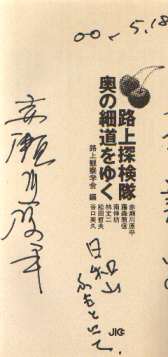 00.5.18
路上探検隊
奥の細道をゆく
路上観察学会 編
赤瀬川原平
藤森照信
南伸坊
林丈二
松田哲夫
谷口英久
JICC
赤瀬川原平
日和山
ふもとにて